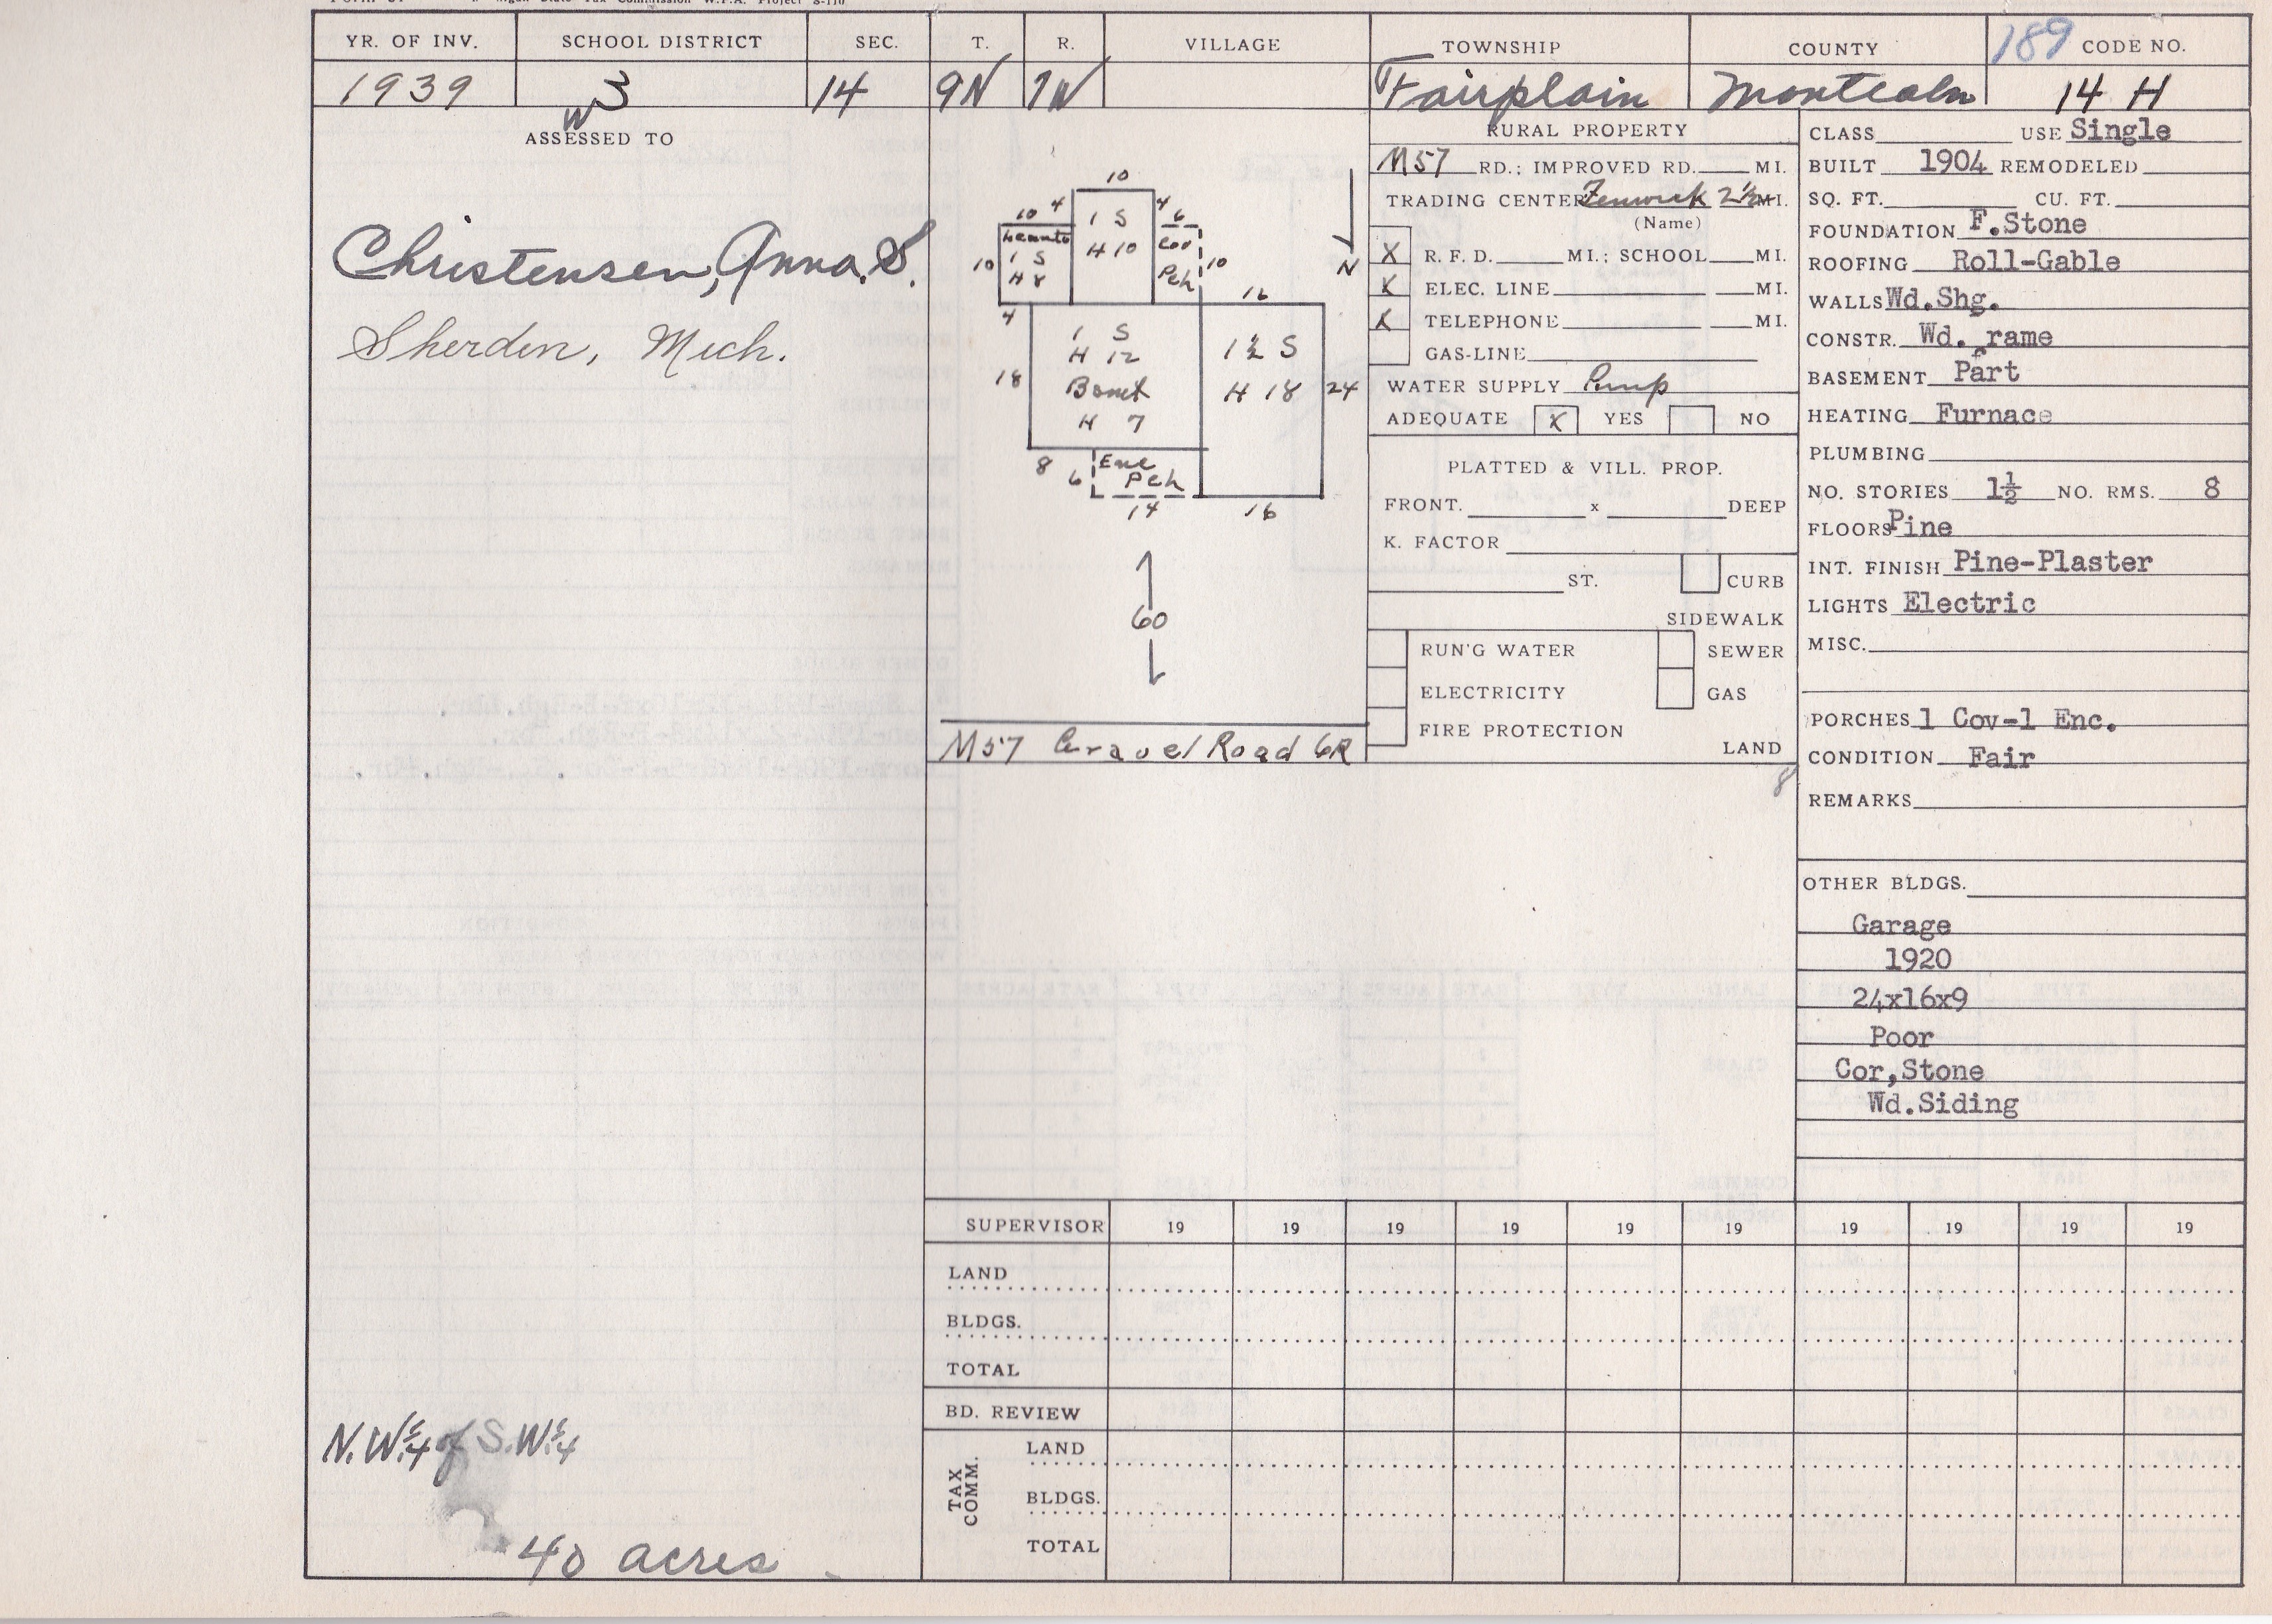 Tax Commission W.P.A. Project S-110
YR. OF INV. SCHOOL DISTRICT SEC. T. R. VILLAGE TOWNSHIP COUNTY 189 CODE NO.
1939 3 14 9N 7W Fairplain Montcalm 14 H
W
ASSESSED TO
Christensen, Anna. S.
Sherden, Mich.
N.W.¼ of S.W.¼
40 acres
10
10 4 1 S 4 6
Leanto H 10 Cov
10 1 S Pch 10
H 8
N
16
4
1 S 1½ S
H 12
18 Bsmt H 18 24
H 7
8 6 Enc
Pch
14 16
60
M57 Gravel Road 6R
RURAL PROPERTY
M57 RD.; IMPROVED RD. MI.
TRADING CENTER Fenwick 2½ MI.
(Name)
X R. F. D. MI.; SCHOOL MI.
X ELEC. LINE MI.
X TELEPHONE MI.
GAS-LINE
WATER SUPPLY Pump
ADEQUATE X YES NO
PLATTED & VILL. PROP.
FRONT. x DEEP
K. FACTOR
ST. CURB
SIDEWALK
RUN'G WATER SEWER
ELECTRICITY GAS
FIRE PROTECTION
LAND
8
CLASS USE Single
BUILT 1904 REMODELED
SQ. FT. CU. FT.
FOUNDATION F.Stone
ROOFING Roll-Gable
WALLS Wd.Shg.
CONSTR. Wd. frame
BASEMENT Part
HEATING Furnace
PLUMBING
NO. STORIES 1½ NO. RMS. 8
FLOORS Pine
INT. FINISH Pine-Plaster
LIGHTS Electric
MISC.
PORCHES 1 Cov-1 Enc.
CONDITION Fair
REMARKS
OTHER BLDGS.
Garage
1920
24x16x9
Poor
Cor,Stone
Wd.Siding
SUPERVISOR 19 19 19 19 19 19 19 19 19 19
LAND
BLDGS.
TOTAL
BD. REVIEW
TAX COMM.
LAND
BLDGS.
TOTAL